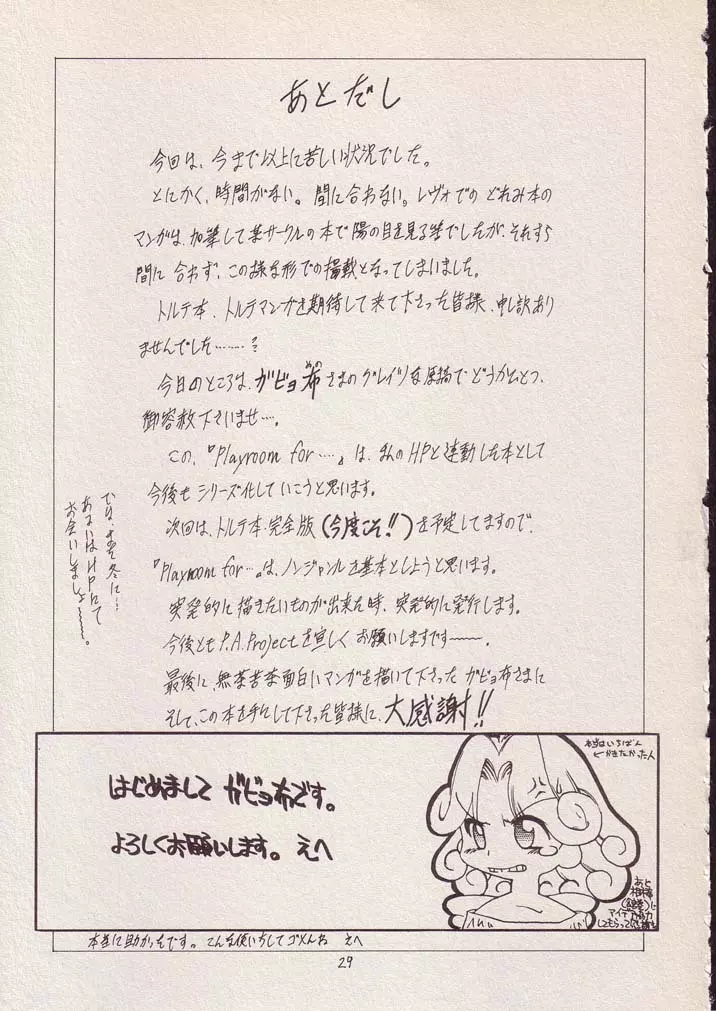 あとだし
今回は、今まで以上に苦しい状況でした。
とにかく、時間がない。間に合わない。レヴォでの どれみ本の
マンガは、加筆して某サークルの本で陽の目を見る筈でしたが、それすら
間に合わず、この様な形での掲載となってしまいました。
トルテ本、トルテマンガを期待して来て下さった皆様、申し訳あり
ませんでした………?
今日のところは、ガビョ布さまのグレイツな原稿でどうかひとつ、
御容赦下さいませ…。
この、『Playroom for…』は、私のHPと連動した本として
今後もシリーズ化していこうと思います。
次回は、トルテ本完全版(今度こそ!!)を予定してますので、
『Playroom for…』は、ノンジャンルを基本としようと思います。
突発的に描きたいものが出来た時、突発的に発行します。
今後ともP.A.Projectを宜しくお願いしますです〜〜。
最後に、無茶苦茶面白いマンガを描いて下さった ガビョ布さまに
そして、この本を手にして下さった皆様に、大感謝!!
では、また冬に…
あるいはHPにて
お会いしましょ〜〜。
はじめまして ガビョ布です。
よろしくお願いします。 えへ
本当はいちばん
←かきたかった人
あと
相棒
に
アイデア
してもらって
本当に助かったです。こんな使いちしてゴメんね えへ
29